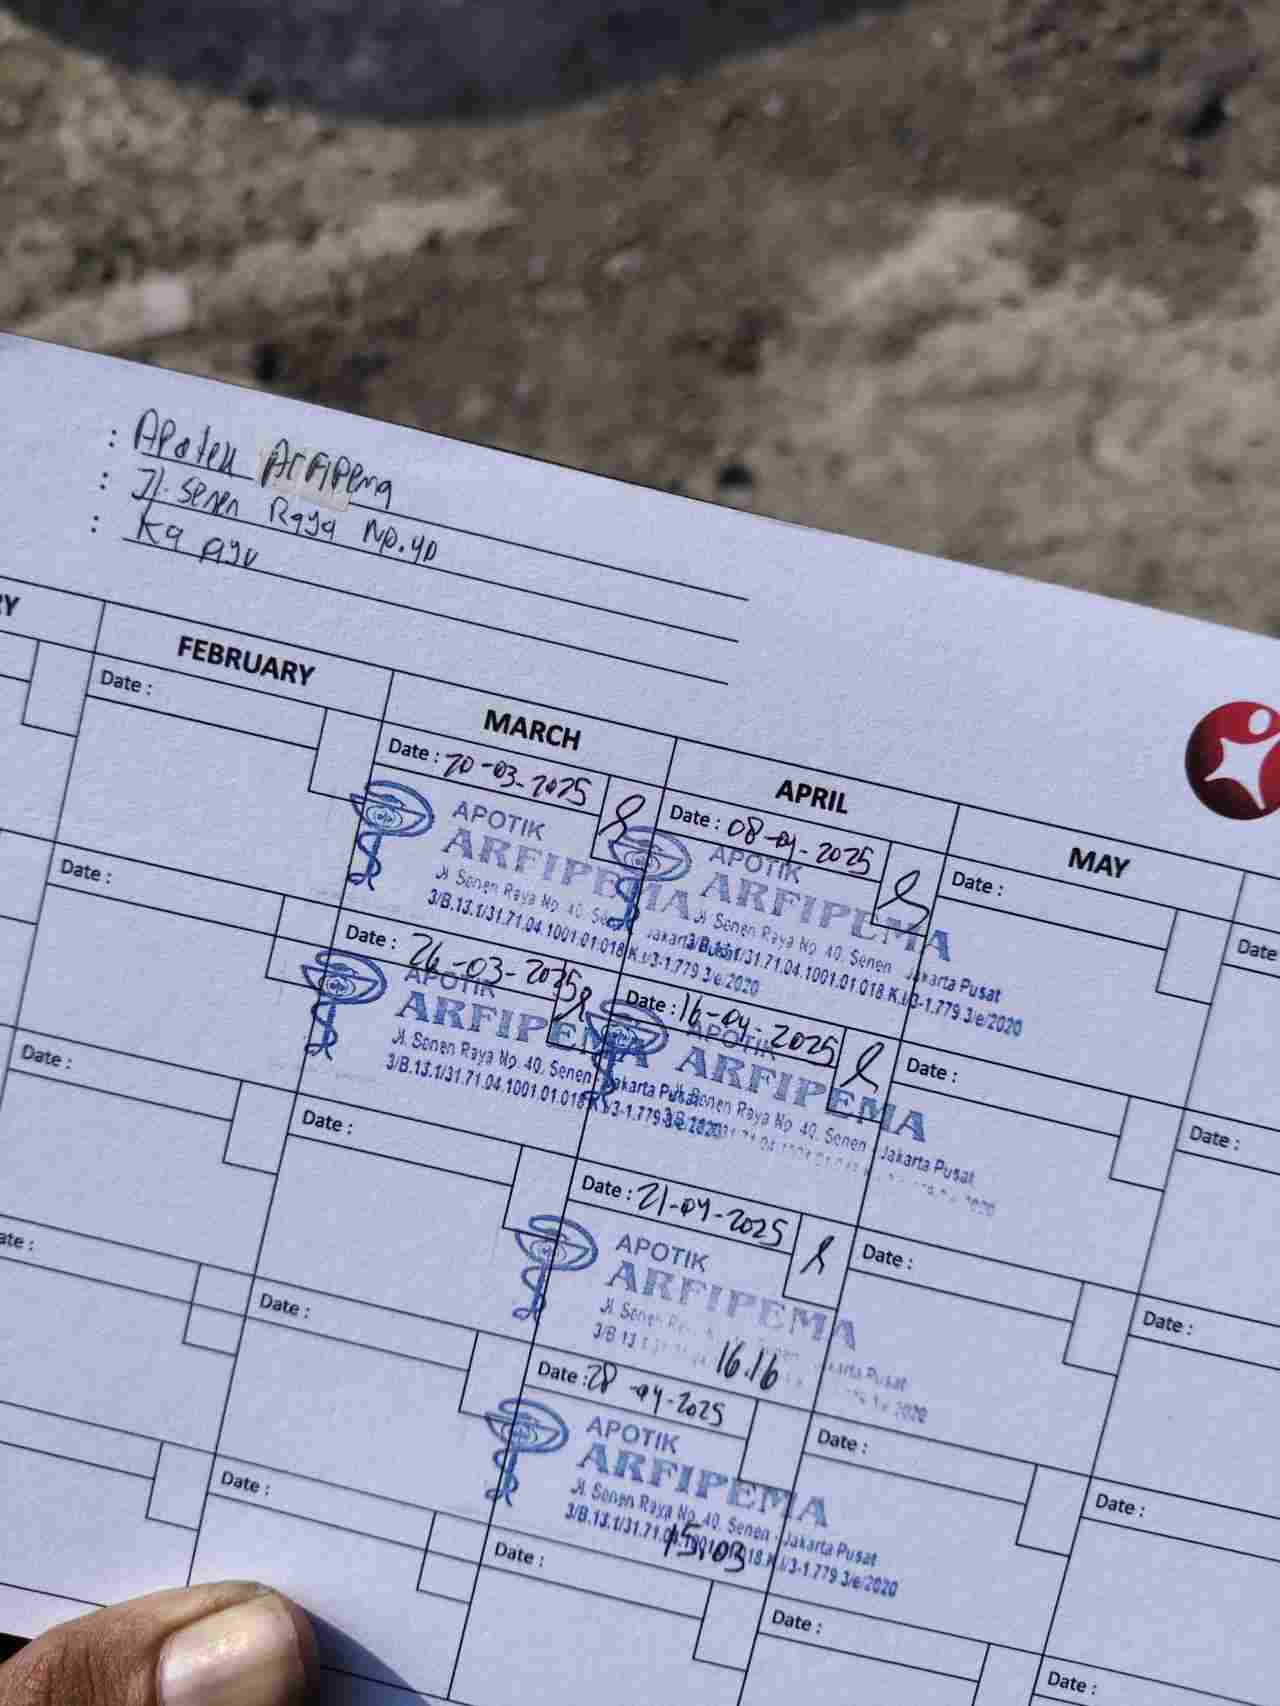 : Apotek Arfipema
: Jl. Senen Raya No. 40
: Ka Ayu
RY
FEBRUARY
MARCH
APRIL
MAY
Date :
Date : 20-03-2025
APOTIK
ARFIPEMA
Jl Senen Raya No 40. Senen Jakarta Pusat
3/B.13.1/31.71.04.1001.01.018.K.I/3-1.779.3/e/2020
Date : 08-04-2025
APOTIK
ARFIPEMA
Jl Senen Raya No 40. Senen Jakarta Pusat
3/B.13.1/31.71.04.1001.01.018.K.I/3-1.779 3/e/2020
Date :
Date
Date :
Date : 26-03-2025
APOTIK
ARFIPEMA
Jl. Senen Raya No. 40. Senen Jakarta Pusat
3/B.13.1/31.71.04.1001.01.018.K.I/3-1.779.3/e/2020
Date : 16-04-2025
APOTIK
ARFIPEMA
Jl. Senen Raya No 40. Senen - Jakarta Pusat
Date :
Date :
Date :
Date :
Date : 21-04-2025
APOTIK
ARFIPEMA
Jl. Senen Jakarta Pusat
16.16
Date :
Date :
ate :
Date :
Date : 28-04-2025
APOTIK
ARFIPEMA
Jl. Senen Raya No. 40. Senen - Jakarta Pusat
3/B.13.1/31.71.04.1001.01.018.K.I/3-1.779 3/e/2020
15.03
Date :
Date :
Date :
Date :
Date :
Date :